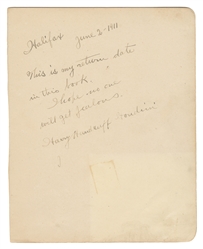 Halifax June 2-1911.
This is my return date
in this book.
I hope no one
will get jealous.
Harry Houdini